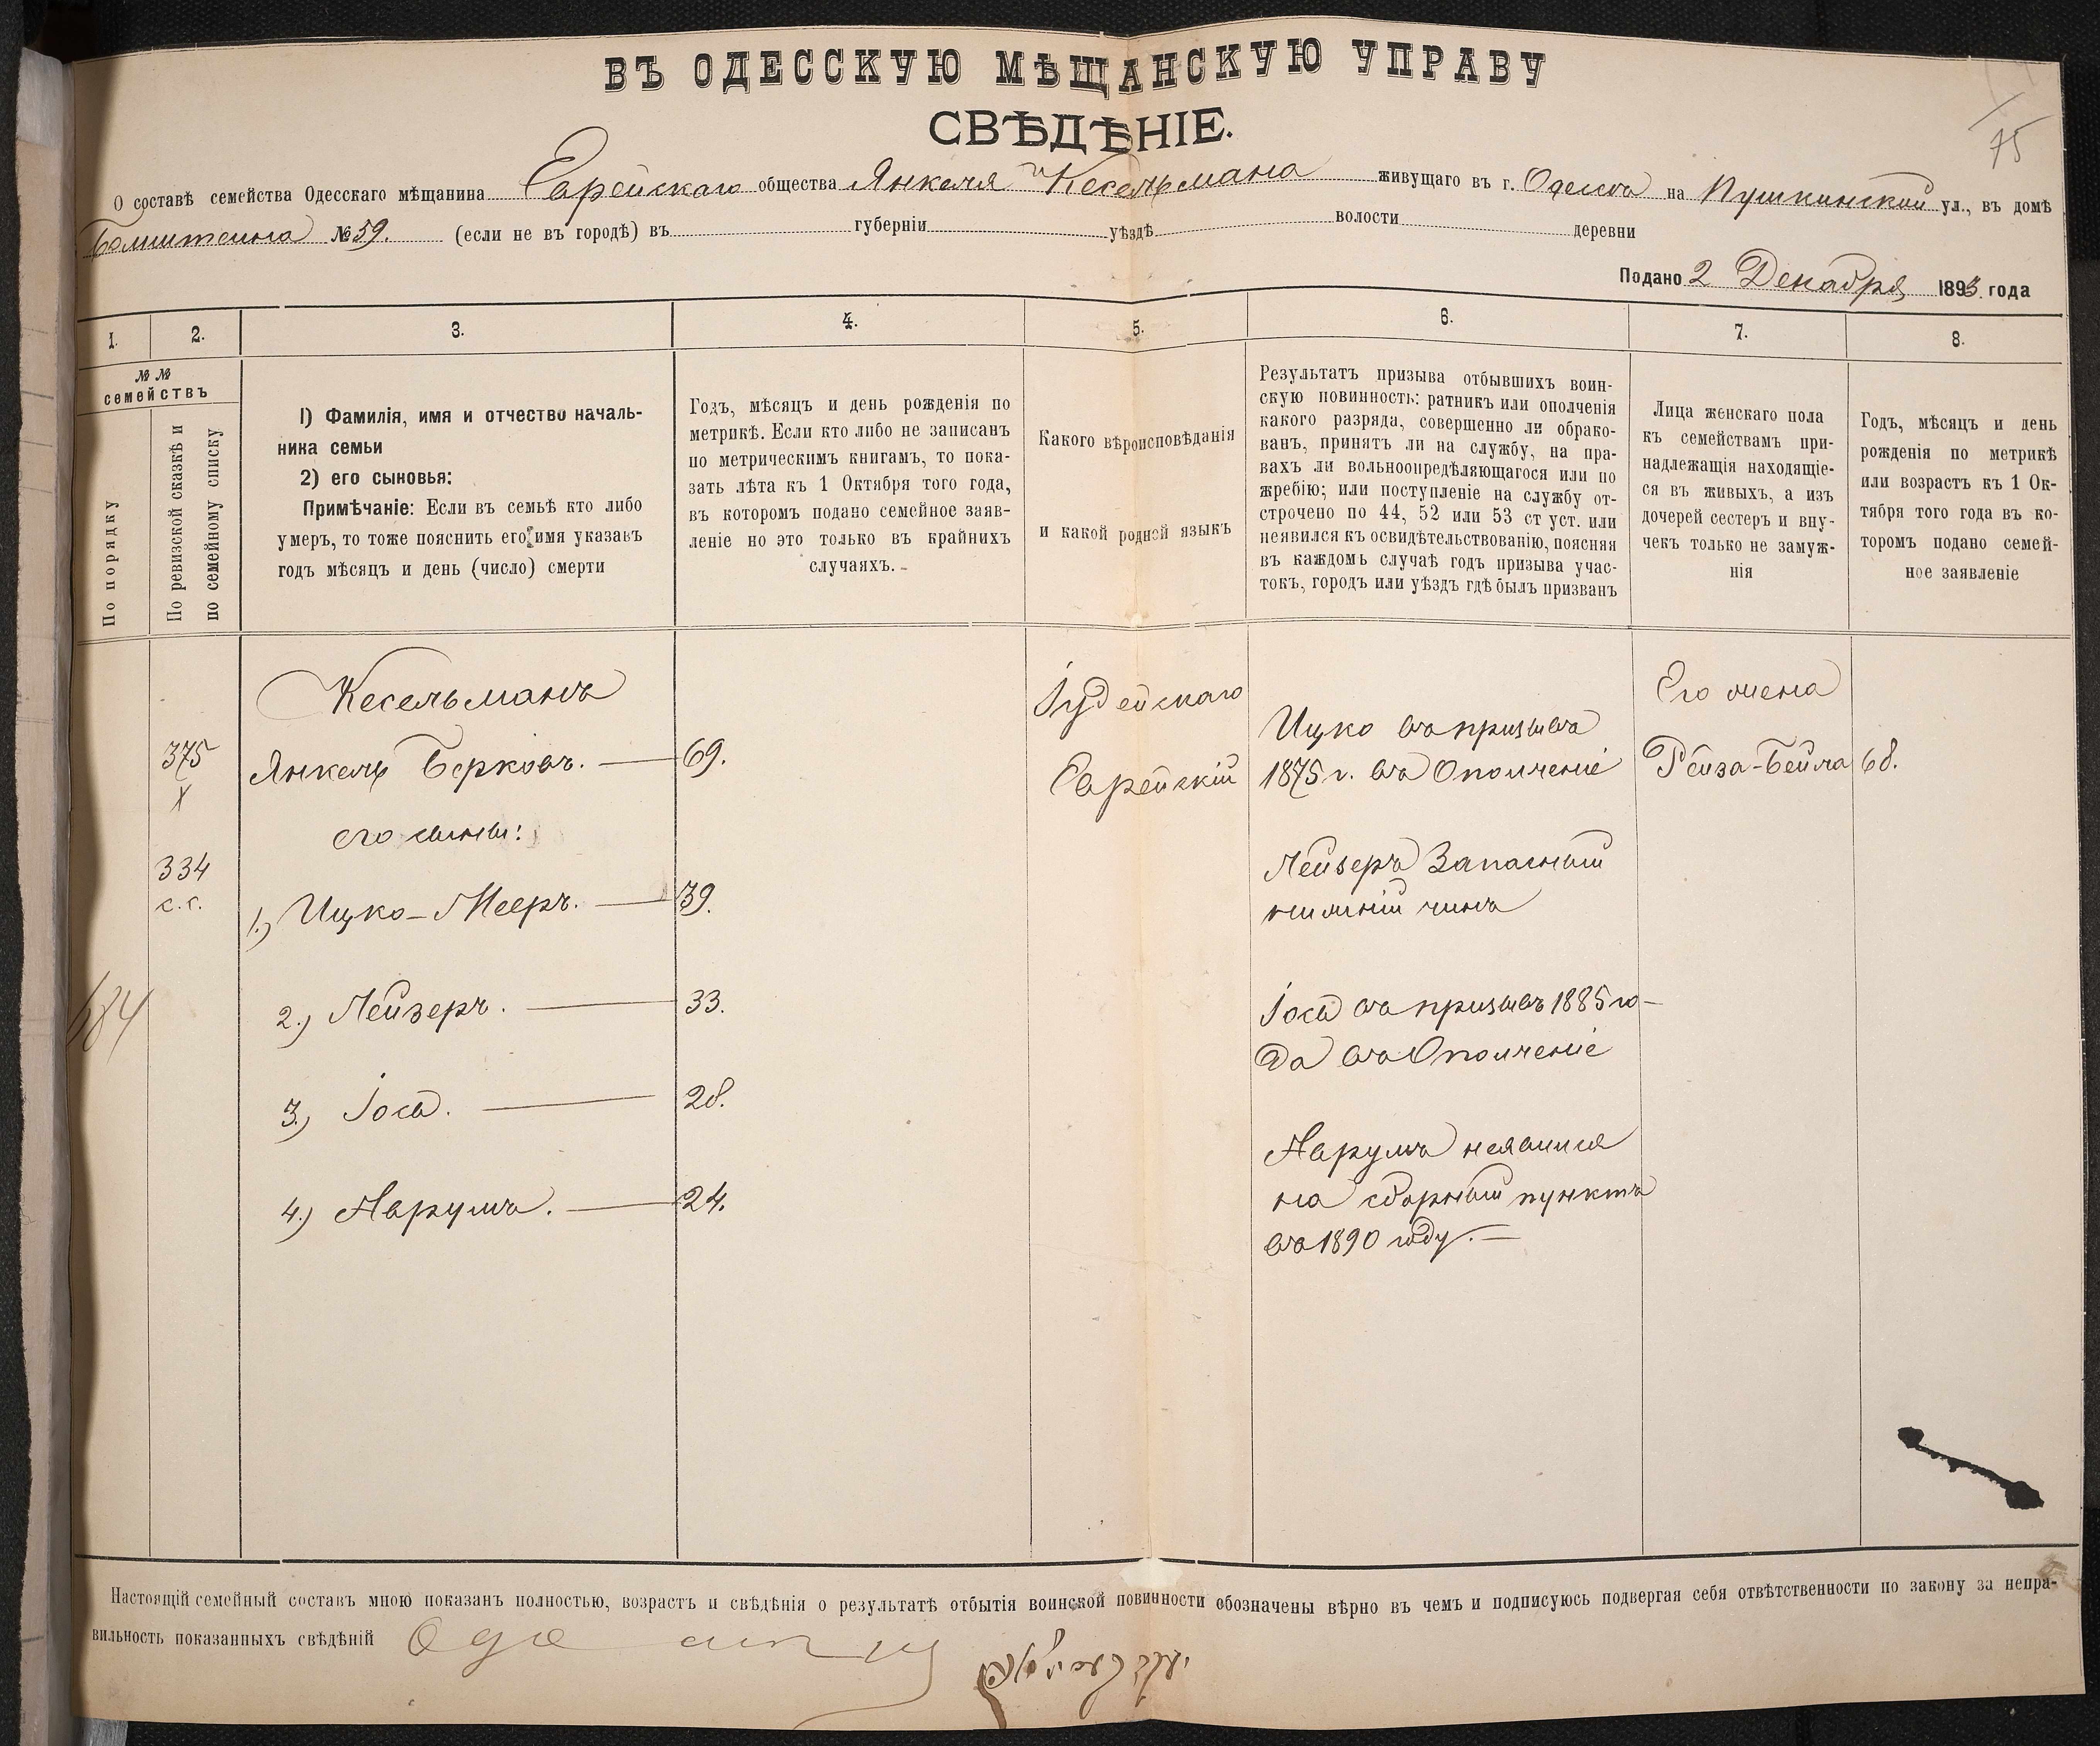 ВЪ ОДЕССКУЮ МѢЩАНСКУЮ УПРАВУ
СВѢДѢНІЕ.
75
О составѣ семейства Одесскаго мѣщанина Еврейскаго общества Янкеля Кесельмана живущаго въ г. Одессѣ на Пушкинской ул., въ домѣ
№ 59. (если не въ городѣ) въ губерніи уѣздѣ волости деревни
Подано 2 Декабря 1893 года
1. 2. 3. 4. 5. 6. 7. 8.
№ №
семействъ
По порядку
По ревизской сказкѣ и
по семейному списку
1) Фамилія, имя и отчество началь-
ника семьи
2) его сыновья:
Примѣчаніе: Если въ семьѣ кто либо
умеръ, то тоже пояснить его имя указавъ
годъ мѣсяцъ и день (число) смерти
Годъ, мѣсяцъ и день рожденія по
метрикѣ. Если кто либо не записанъ
по метрическимъ книгамъ, то пока-
зать лѣта къ 1 Октября того года,
въ которомъ подано семейное заяв-
леніе но это только въ крайнихъ
случаяхъ.-
Какого вѣроисповѣданія
и какой родной языкъ
Результатъ призыва отбывшихъ воин-
скую повинность: ратникъ или ополченія
какого разряда, совершенно ли обрако-
ванъ, принятъ ли на службу, на пра-
вахъ ли вольноопредѣляющагося или по
жребію; или поступленіе на службу от-
строчено по 44, 52 или 53 ст уст. или
неявился къ освидѣтельствованію, поясняя
въ каждомъ случаѣ годъ призыва учас-
токъ, городъ или уѣздъ гдѣ былъ призванъ
Лица женскаго пола
къ семействамъ при-
надлежащія находящіе-
ся въ живыхъ, а изъ
дочерей сестеръ и вну-
чекъ только не замуж-
нія
Годъ, мѣсяцъ и день
рожденія по метрикѣ
или возрастъ къ 1 Ок-
тября того года въ ко-
торомъ подано семей-
ное заявленіе
684
375
X
334
с.с.
Кесельманъ
Янкель Берковъ. — 69.
его сыны:
1.) Ицко-Мееръ. — 39.
2.) Лейзеръ. — 33.
3.) Іось. — 28.
4.) Аврумъ. — 24.
Іудейскаго
Еврейскій
Ицко въ призывъ
1875 г. въ Ополченіе
Лейзеръ Запасный
нижній чинъ
Іось въ призывъ 1885 го-
да въ Ополченіе
Аврумъ неявился
на сборный пунктъ
въ 1890 году. —
Его жена
Рейза-Бейла 68.
Настоящій семейный составъ мною показанъ полностью, возрастъ и свѣдѣнія о результатѣ отбытія воинской повинности обозначены вѣрно въ чемъ и подписуюсь подвергая себя отвѣтственности по закону за непра-
вильность показанныхъ свѣдѣній